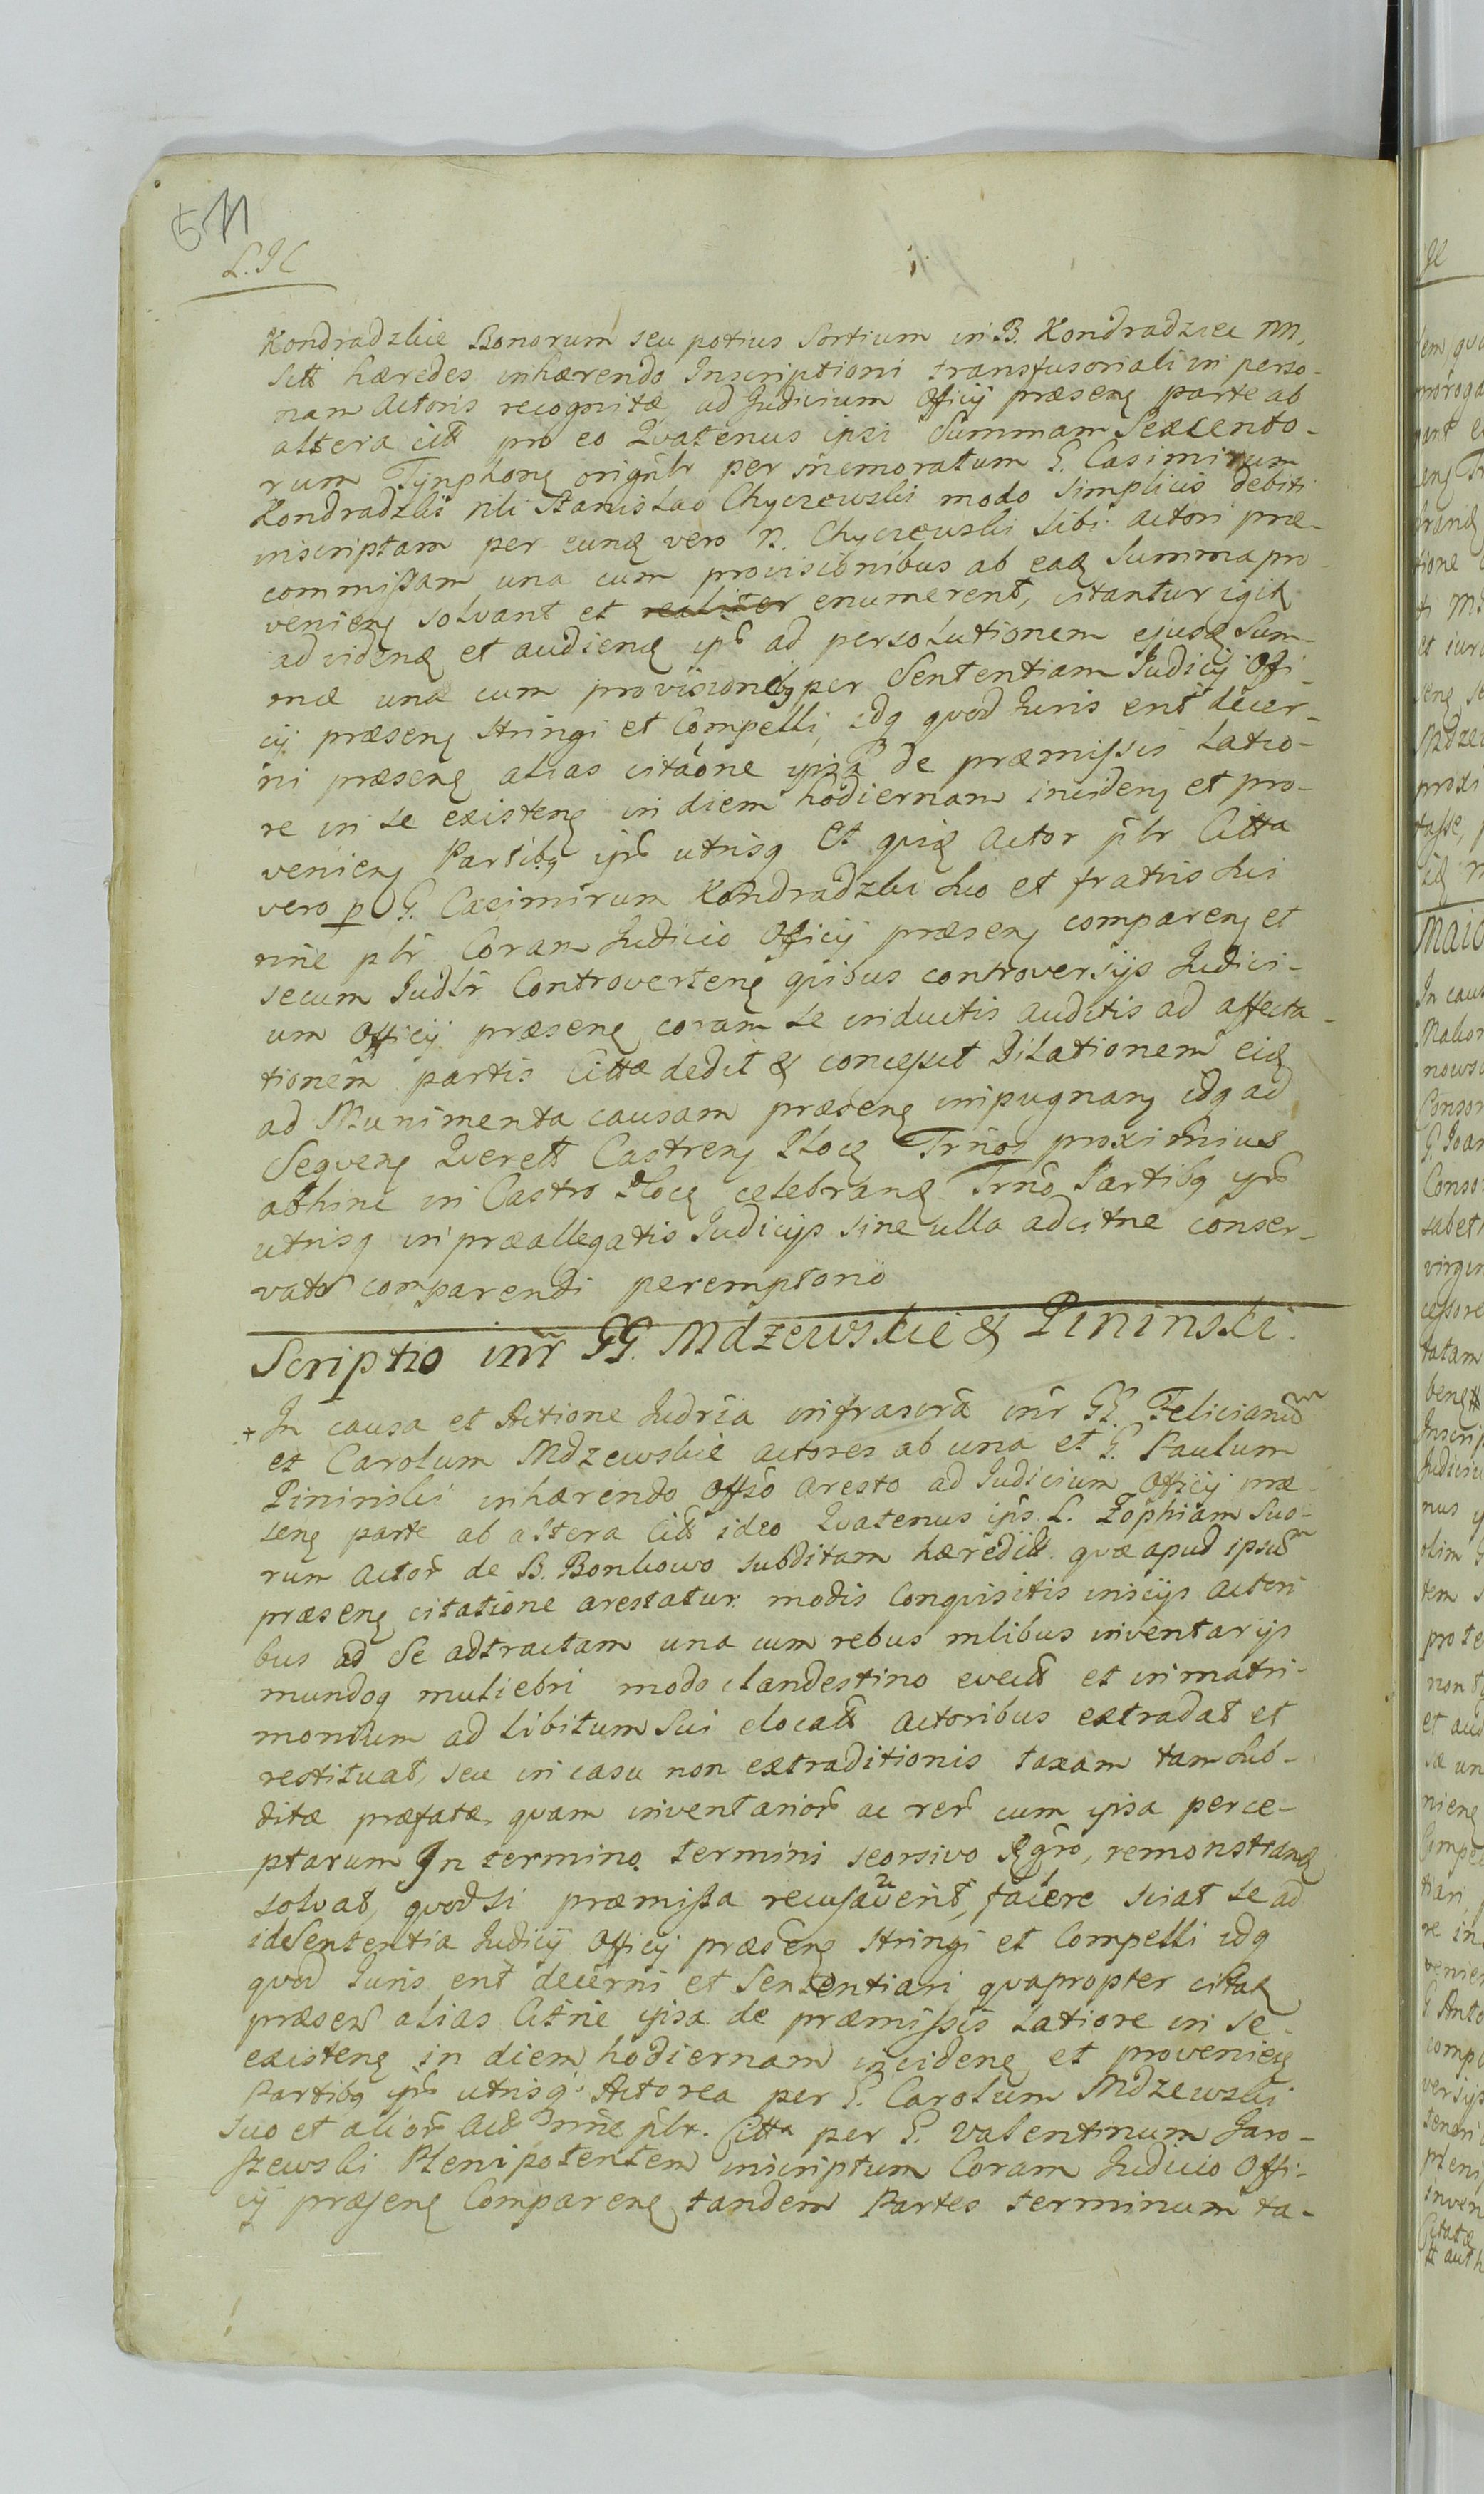 511
L. JC
Kondradzkie Bonorum seu potius Sortium in B. Kondradziec NN,
Sitt hæredes inhærendo Inscriptioni transfusoriali in perso-
nam Actoris recognitæ ad Judicium Officij præsens parte ab
altera citt pro eo Quatenus ipsi Summam Sexcento-
rum Tynphong originlr per memoratum G. Casimirum
Kondradzki Nli Stanislao Chyczewski modo simplicis debiti
inscriptam per eund vero N. Chyczewski sibi Actori præ-
commissam una cum provisionibus ab ead Summa pro-
venieng solvant et enumerent, citantur igit
ad videnđ et audienđ ips ad persolutionem ejusđ Sum-
mæ una cum provisionibq per Sententiam Judicij Offi-
cij præseng stringi et Compelli, idq quod Juris erit decer-
ni præseng alias citãone ipsa de præmissis latio-
re in se existeng in diem hodiernam incideng et pro-
venieng Partibq ips utrisq Et quiđ Actor plr Citta
vero p G. Casimirum Kondradzki suo et fratris sui
nñe plr Coram Judicio Officij præseng compareng et
secum Judlr Controverteng quibus controversijs Judici-
um Officij præseng coram se inductis auditis ad affecta-
tionem partis Cittæ dedit & concessit Dilationem eiđ
ad Munimenta causam præseng inpugnang idq ad
Sequeng Querell Castreng Ploceg Trños proximius
abhinc in Castro Ploceg celebranđ Trño Partibq ips
utrisq in præallegatis Judicijs sine ulla adcitne conser-
vato comparendi peremptorio
Scriptio intr GG. Mdzewskie & Pininski.
+ In causa et Actione Judria infrascra intr GG. Felicianum
et Carolum Mdzewskie actores ab una et G. Paulum
Pininski inhærendo Offso aresto ad Judicium Officij præ-
seng parte ab altera Citt ideo Quatenus ips L. Zophiam Suo-
rum Actor de B. Bonkowo subditam hæredit. quæ apud ipsum
præseng citatione arestatur modis Conquisitis inscijs actori-
bus ad se adtractam una cum rebus mlibus inventarijs
mundoq muliebri modo clandestino evect et in matri-
monium ad libitum sui elocatt Actoribus extradat et
restituat, seu in casu non extraditionis taxam tam sub-
ditæ præfatæ quam inventarior ac rer cum ipsa perce-
ptarum In termino termini seorsivo Rgro, remonstranđ
solvat, quodsi præmissa recusaverit, facere sciat se ad
id Sententia Judicij Officij præseng stringi et Compelli idq
quod Juris erit decerni et Sententiari quapropter citat
præsen alias Citne ipsa de præmissis latiore in se
existeng in diem hodiernam incideng et provenieng
Partibq ips utrisq Actorea per G. Carolum Mdzewski
suo et alior Act nñe plr. Citta per G. Valentinum Jaro-
szewski Plenipotentem inscriptum Coram Judicio Offi-
cij præseng Compareng tandem Partes terminum ta-